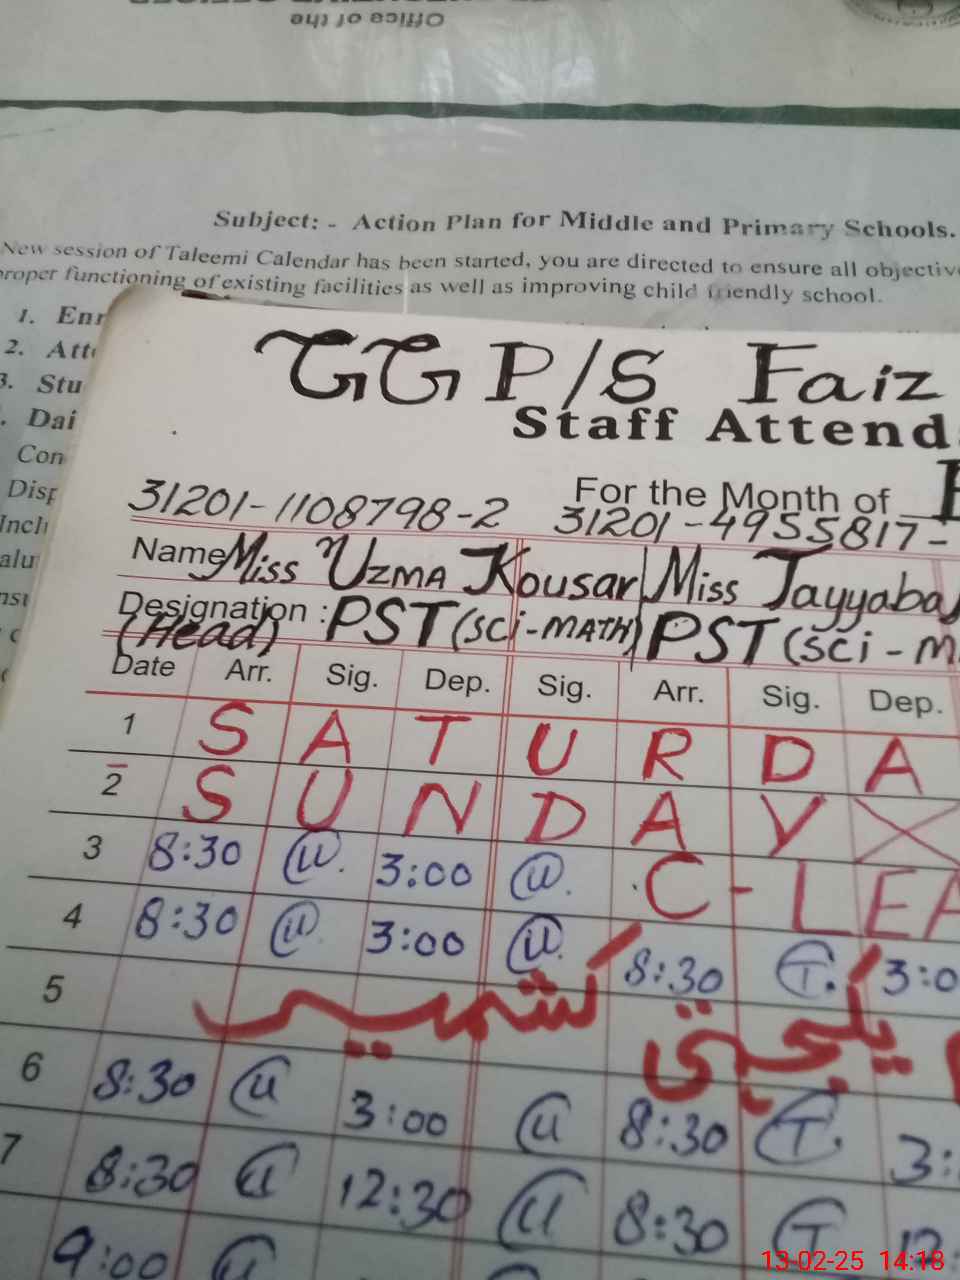 Office of the
Subject: - Action Plan for Middle and Primary Schools.
New session of Taleemi Calendar has been started, you are directed to ensure all objectiv
proper functioning of existing facilities as well as improving child friendly school.
1. Enr
2. Att
3. Stu
. Dai
Con
Disp
Incl
alu
GGP/S Faiz
Staff Attend
For the Month of
31201-1108798-2 31201-4955817-
Name Miss Uzma Kousar Miss Tayyaba
Designation : PST (sci-MATH) PST (sci-M
(Head)
Date Arr. Sig. Dep. Sig. Arr. Sig. Dep.
1 S A T U R D A
2 S U N D A Y
3 8:30 U. 3:00 U. C-LEA
4 8:30 U. 3:00 U. 8:30 T. 3:0
5 یکجہتی کشمیر
6 8:30 U 3:00 U 8:30 T. 3:
7 8:30 U 12:30 U 8:30 T 12
9:00 U
13-02-25 14:18